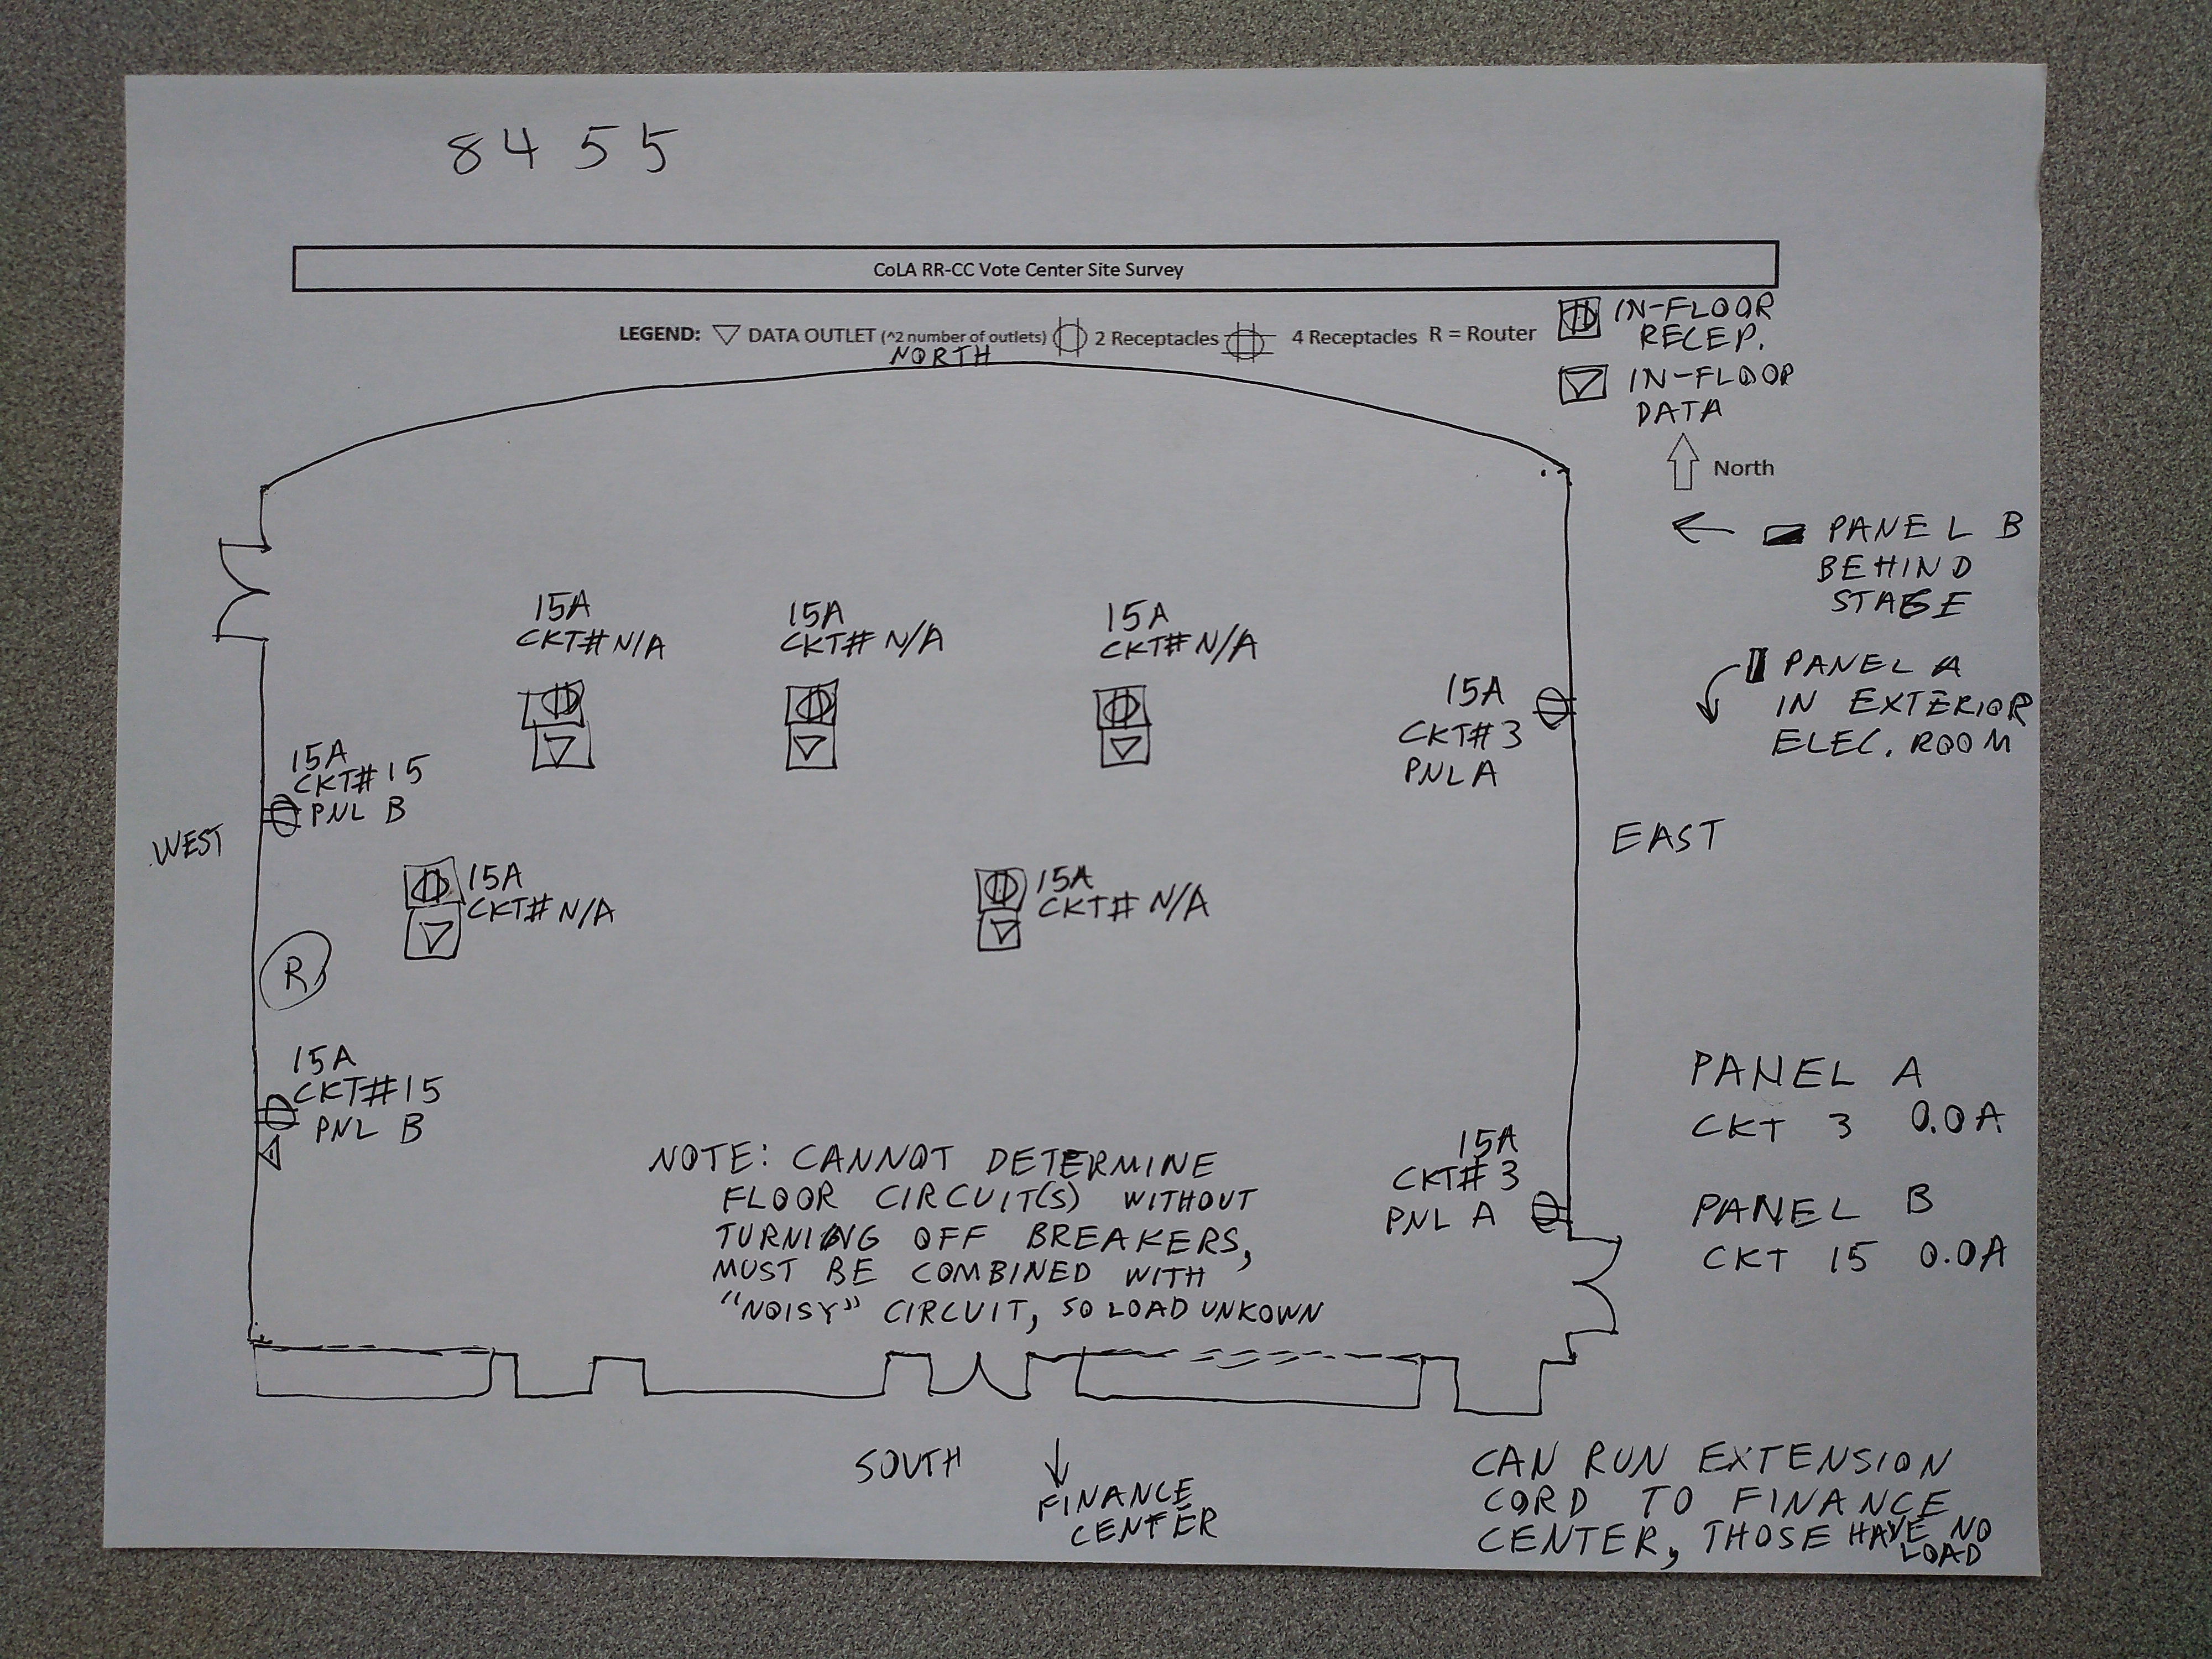 8455
CoLA RR-CC Vote Center Site Survey
LEGEND: DATA OUTLET (^2 number of outlets) 2 Receptacles 4 Receptacles R = Router
IN-FLOOR
RECEP.
IN-FLOOR
DATA
NORTH
North
PANEL B
BEHIND
STAGE
PANEL A
IN EXTERIOR
ELEC. ROOM
15A
CKT# N/A
15A
CKT# N/A
15A
CKT# N/A
15A
CKT#3
PNL A
15A
CKT#15
PNL B
WEST
EAST
15A
CKT# N/A
15A
CKT# N/A
R
15A
CKT#15
PNL B
PANEL A
CKT 3 0.0A
PANEL B
CKT 15 0.0A
15A
CKT#3
PNL A
NOTE: CANNOT DETERMINE
FLOOR CIRCUIT(S) WITHOUT
TURNING OFF BREAKERS,
MUST BE COMBINED WITH
"NOISY" CIRCUIT, SO LOAD UNKOWN
SOUTH
FINANCE
CENTER
CAN RUN EXTENSION
CORD TO FINANCE
CENTER, THOSE HAVE NO
LOAD